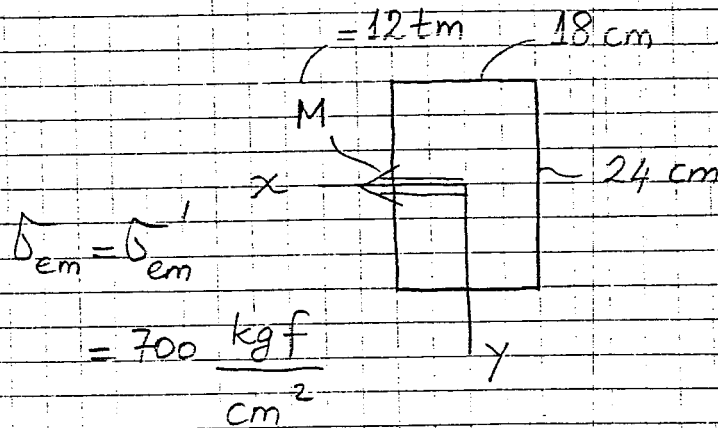 = 12 tm
18 cm
M
x
24 cm
σem = σem'
= 700 kgf / cm²
y